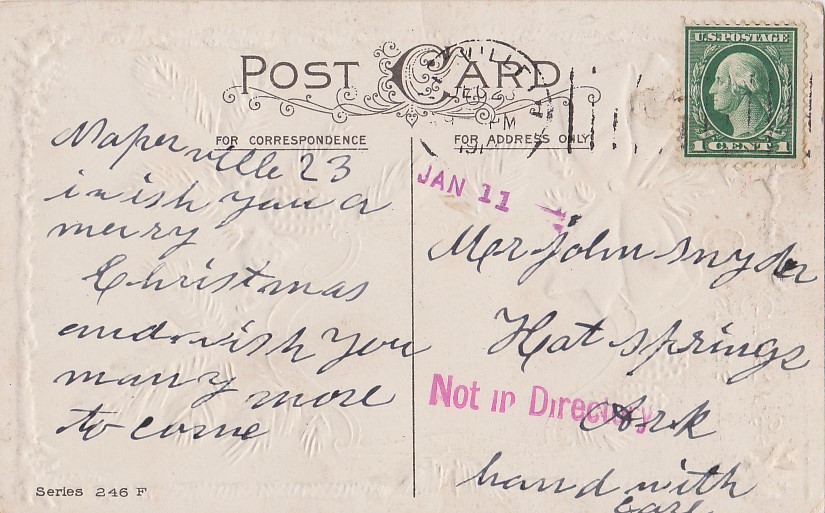 POST CARD
FOR CORRESPONDENCE
FOR ADDRESS ONLY
U.S. POSTAGE
1 CENT 1
PM
191
JAN 11
Naperville 23
i wish you a
merry
Christmas
and wish you
many more
to come
Mr John Snyder
Hot springs
Ark
Not in Directory
hand with
care
Series 246 F